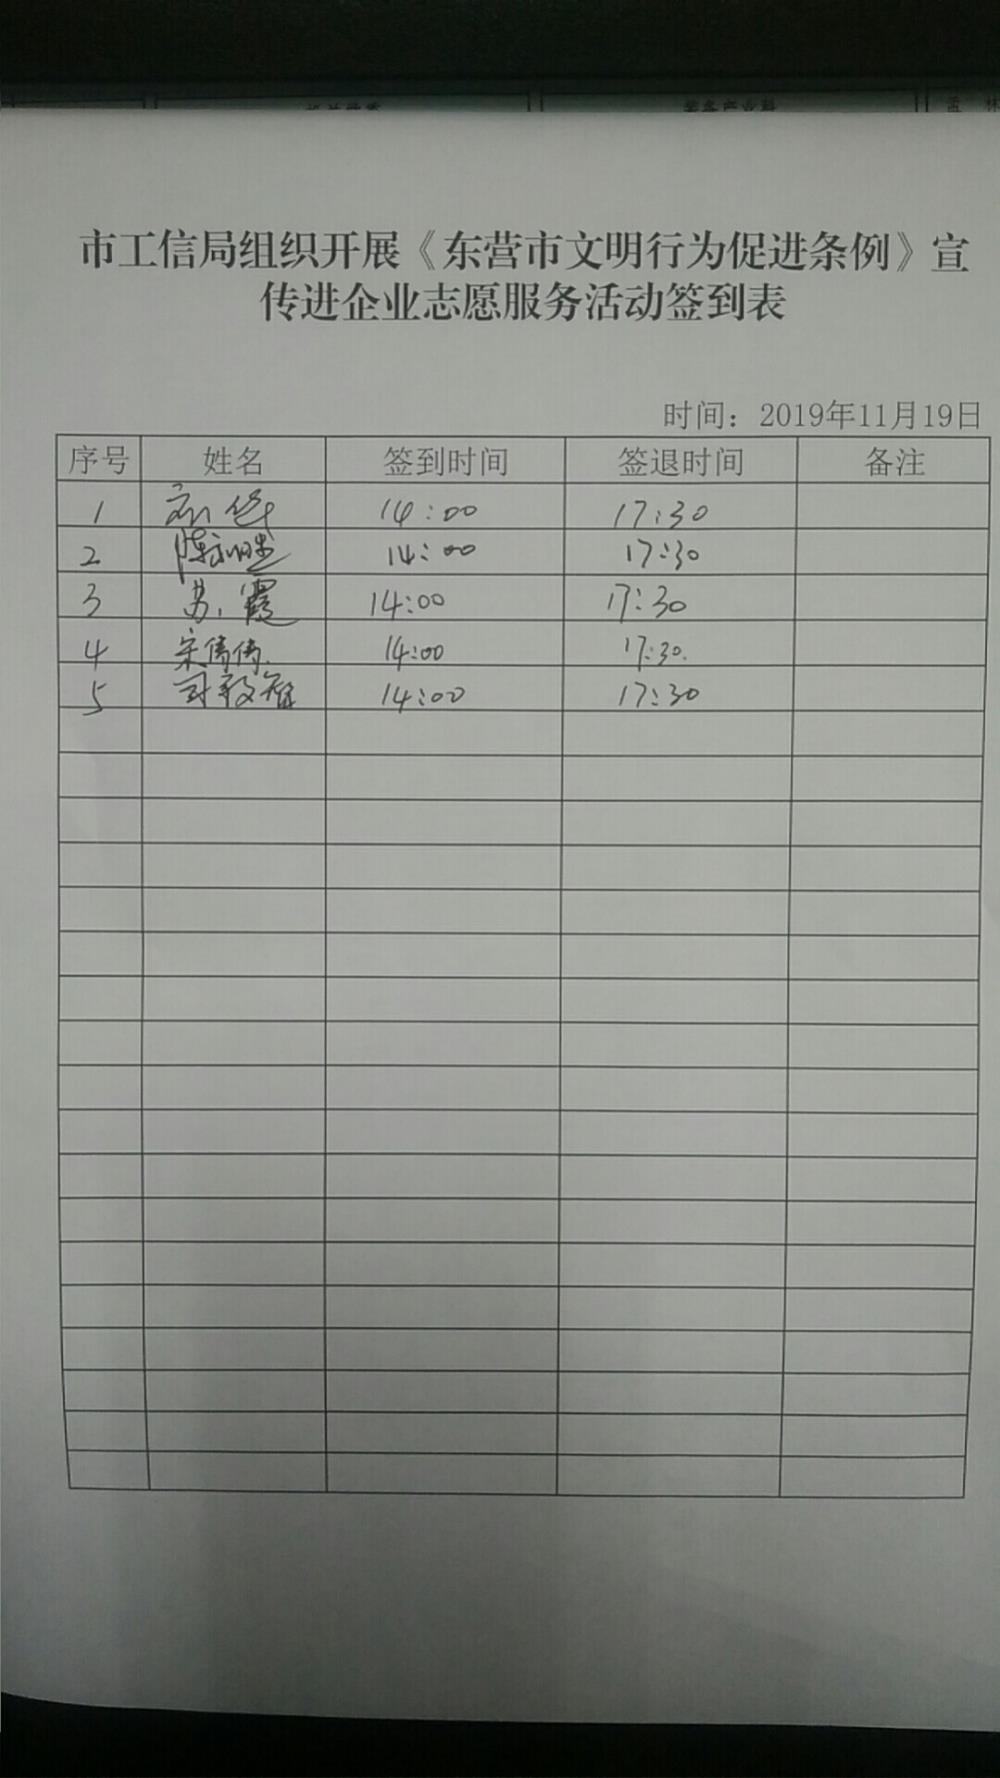 装备产业科
市工信局组织开展《东营市文明行为促进条例》宣
传进企业志愿服务活动签到表
时间：2019年11月19日
序号 姓名 签到时间 签退时间 备注
1 14:00 17:30
2 14:00 17:30
3 苏霞 14:00 17:30
4 宋倩倩 14:00 17:30
5 14:00 17:30